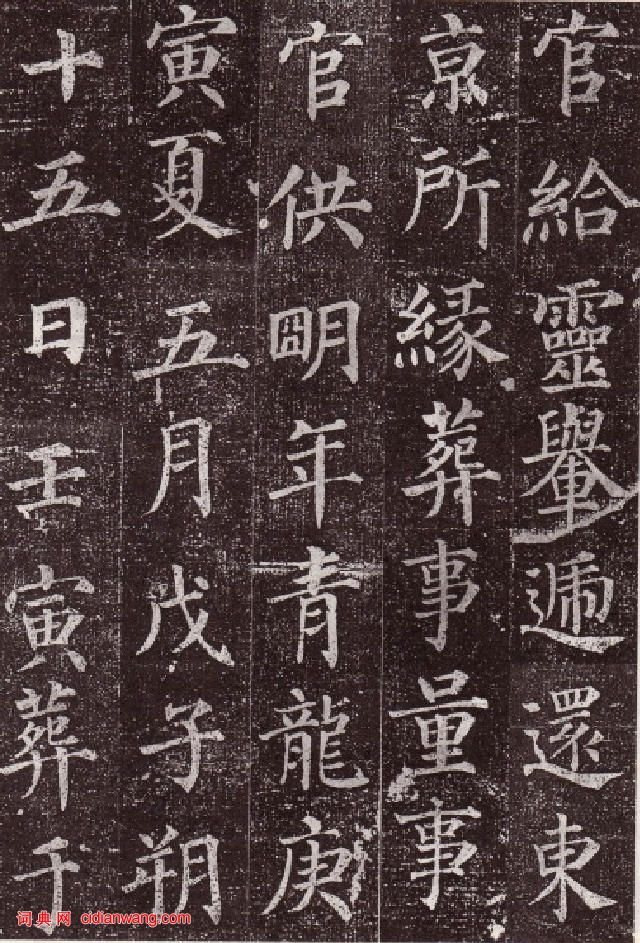 官給靈轝遞還東
京所緣葬事量事
官供明年青龍庚
寅夏五月戊子朔
十五日壬寅葬于
词典网 cidianwang.com